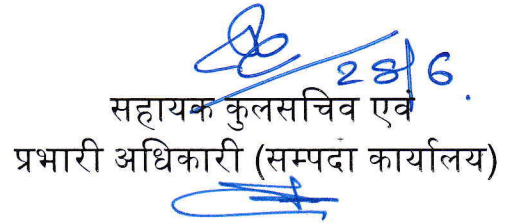 28/6.
सहायक कुलसचिव एवं
प्रभारी अधिकारी (सम्पदा कार्यालय)